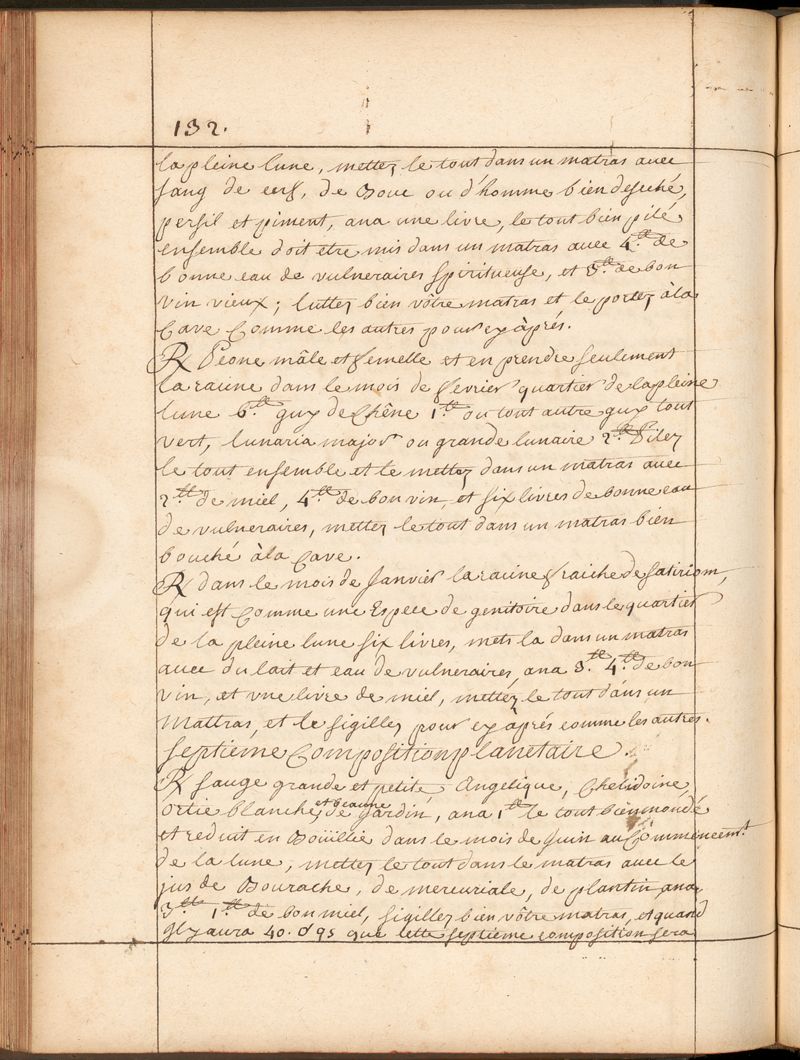 132.
la pleine lune, mettez le tout dans un matras avec
sang de cerf, de Bouc ou d'homme bien deseché,
persil et piment, ana une livre, le tout bien pilé
ensemble doit etre mis dans un matras avec 4.tt de
bonne eau de vulneraires spiritueuse, et 3.tt de bon
vin vieux; luttez bien vôtre matras et le portez à la
Cave Comme les autres pour cy àprés.
℞ Peone mâle et femelle et en prendre seulement
la racine dans le mois de fevrier quartier de la pleine
lune 6.tt guy de Chêne 1.tt ou tout autre guy tout
vert, lunaria major ou grande lunaire 2.tt Pilez
le tout ensemble et le mettez dans un matras avec
2.tt de miel, 4.tt de bon vin, et six livres de bonne eau
de vulneraires, mettez le tout dans un matras bien
bouché à la Cave.
℞ dans le mois de Janvier la racine fraiche de satiriom,
qui est Comme une Espece de genitoire dans le quartier
de la pleine lune six livres, mets la dans un matras
avec du lait et eau de vulneraires, ana 3.tt 4.tt de bon
vin, et une livre de miel, mettéz le tout dans un
Mattras, et le sigillez pour cy àprés comme les autres.
Septiéme Composition planetaire.
℞ sauge grande et petite Angelique, Chelidoine,
Ortie blanche, et beaune de jardin, ana 1.tt le tout bien mondé
et reduit en Boüillie dans le mois de Juin au Commencem.t
de la lune, mettez le tout dans le matras avec le
jus de Bourache, de mercuriale, de plantin, ana
3.tt 1.tt de bon miel, sigillez bien vôtre matras, et quand
il y aura 40. que cette septiéme composition sera